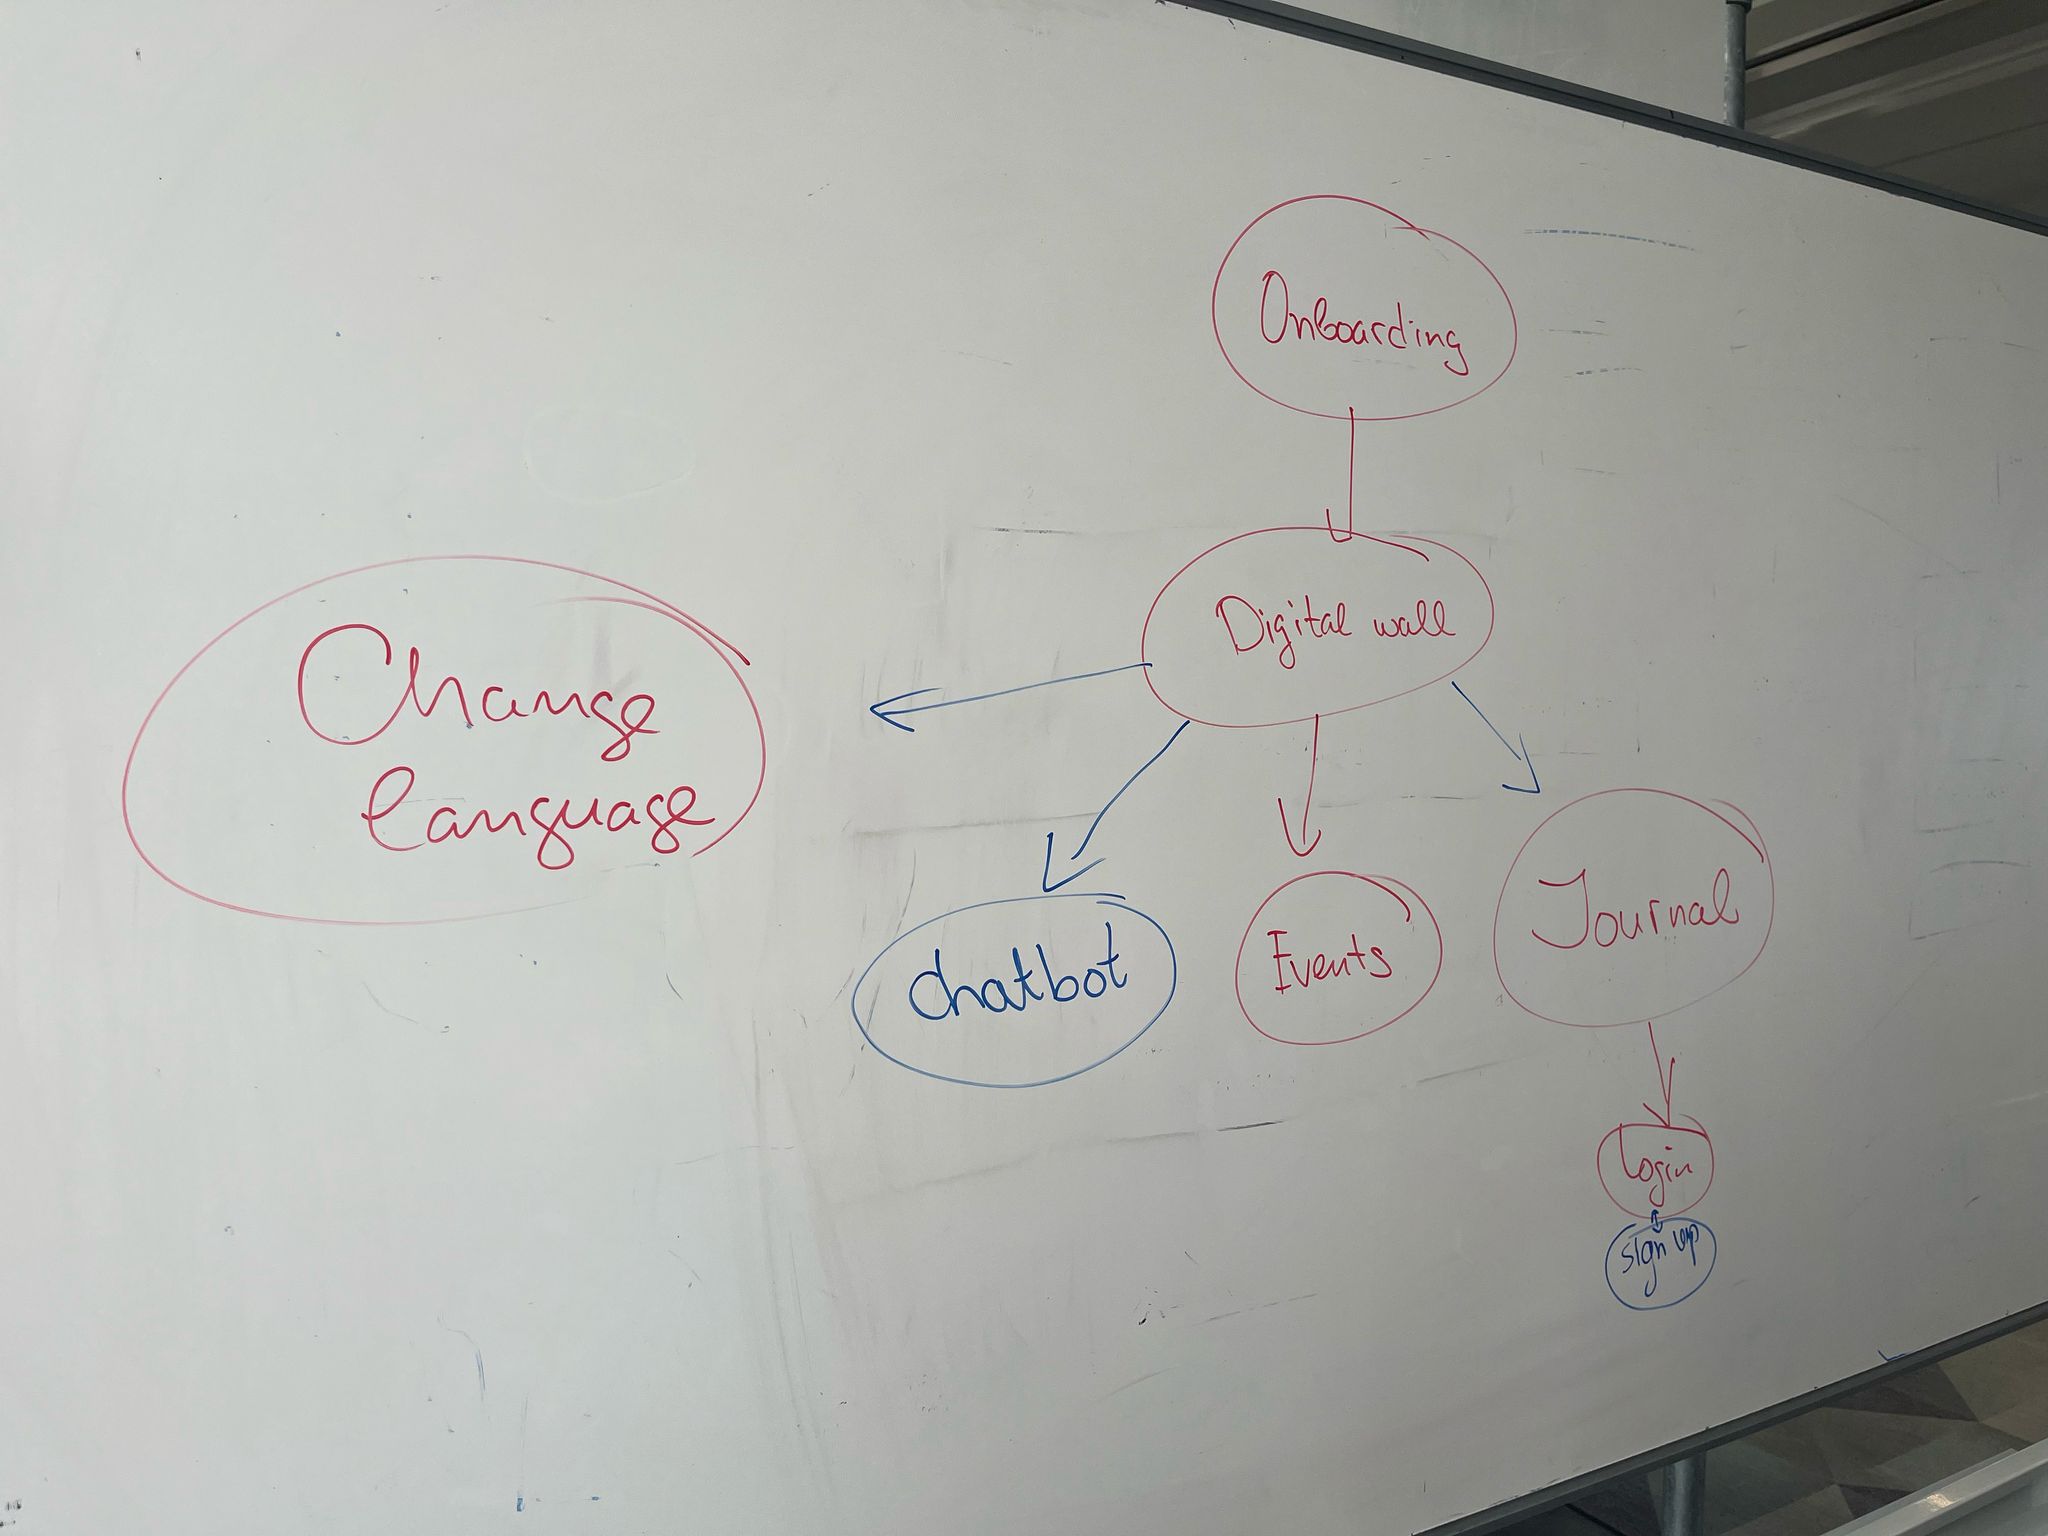 Onboarding
Digital wall
Change
language
Chatbot
Events
Journal
Login
sign up